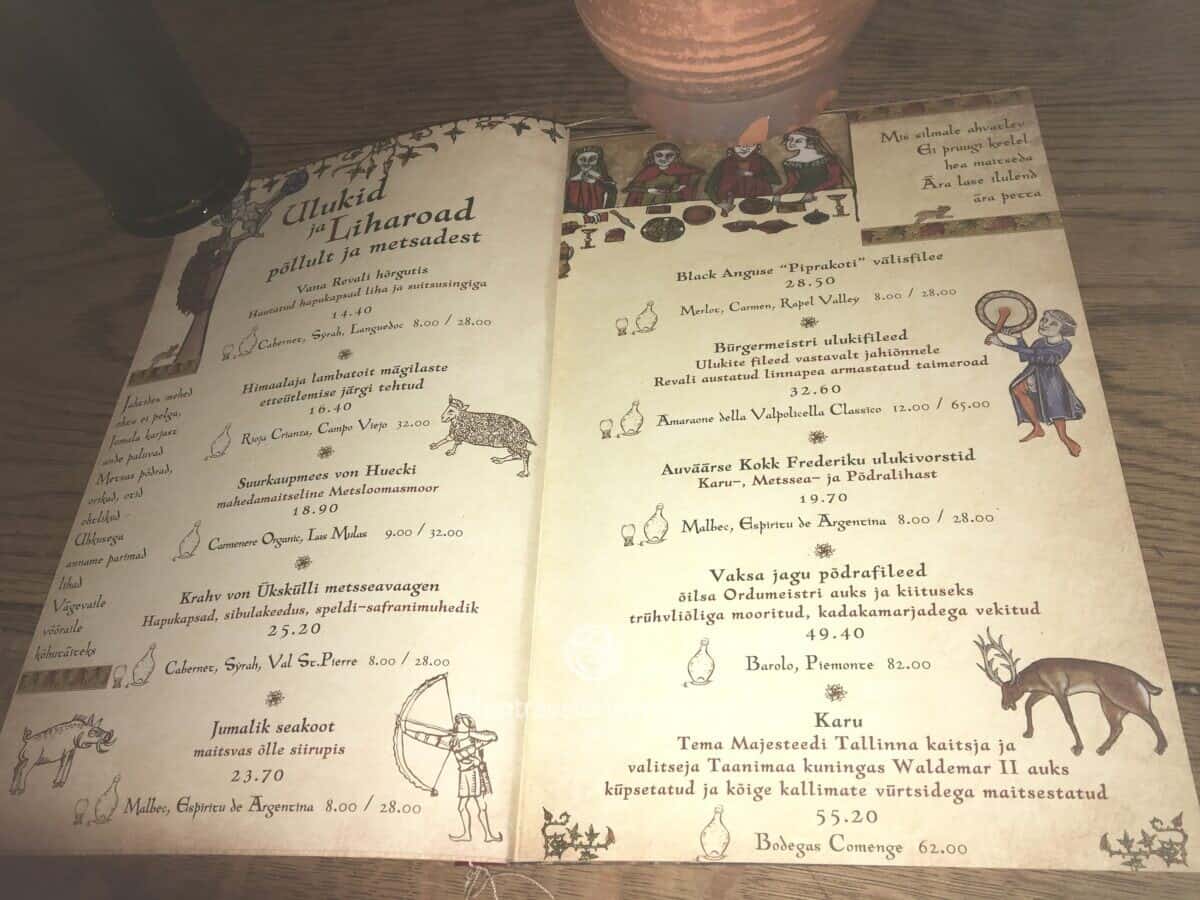 Ulukid
ja Liharoad
põllult ja metsadest
Vana Revali hõrgutis
Hautatud hapukapsad liha ja suitsusingiga
14.40
Cabernet, Sýrah, Languedoc 8.00 / 28.00
Himaalaja lambatoit mägilaste
etteütlemise järgi tehtud
16.40
Rioja Crianza, Campo Viejo 32.00
Suurkaupmees von Huecki
mahedamaitseline Metsloomasmoor
18.90
Carmenere Organic, Las Mulas 9.00 / 32.00
Krahv von Üksküllí metsseavaagen
Hapukapsad, sibulakeedus, speldi-safranimuhedik
25.20
Cabernet, Sýrah, Val St.Pierre 8.00 / 28.00
Jumalik seakoot
maitsvas õlle siirupis
23.70
Malbec, Espiritu de Argentina 8.00 / 28.00
Jahaides mehed
ohtu ei pelga,
Jumala karjast
ande paluvad
Metsas põdrad,
orikad, otid
ohtlikud -
Uhkusega
anname parimad
lihad
Vägevaile
võõraile
kõhutäiteks
Mis silmale ahvatlev
Ei pruugi keelel
hea maitseda
Ära lase ilulend
ära petta
Black Anguse "Piprakoti" välisfilee
28.50
Merlot, Carmen, Rapel Valley 8.00 / 28.00
Bürgermeistri ulukifileed
Ulukite fileed vastavalt jahiõnnele
Revali austatud linnapea armastatud taimeroad
32.60
Amaraone della Valpolicella Classico 12.00 / 65.00
Auväärse Kokk Frederiku ulukivorstid
Karu-, Metssea- ja Põdralihast
19.70
Malbec, Espiritu de Argentina 8.00 / 28.00
Vaksa jagu põdrafileed
õilsa Ordumeistri auks ja kiituseks
trühvliõliga mooritud, kadakamarjadega vekitud
49.40
Barolo, Piemonte 82.00
Karu
Tema Majesteedi Tallinna kaitsja ja
valitseja Taanimaa kuningas Waldemar II auks
küpsetatud ja kõige kallimate vürtsidega maitsestatud
55.20
Bodegas Comenge 62.00